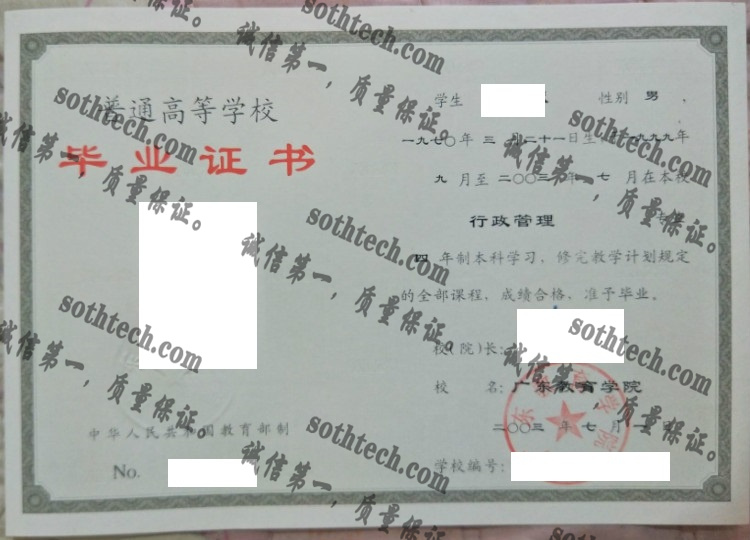 普通高等学校
毕业证书
中华人民共和国教育部制
No.
学生 性别 男 ,
一九七〇年 三 月二十一日生 一九九九年
九 月至 二〇〇三 年 七 月在本校
行政管理
四 年制本科学习，修完教学计划规定
的全部课程，成绩合格，准予毕业。
校(院)长:
校 名: 广东教育学院
二〇〇三 年 七 月 日
学校编号:
sothtech.com
诚信第一，质量保证。
sothtech.com
诚信第一，质量保证。
sothtech.com
诚信第一，质量保证。
sothtech.com
诚信第一，质量保证。
sothtech.com
诚信第一，质量保证。
sothtech.com
诚信第一，质量保证。
sothtech.com
诚信第一，质量保证。
sothtech.com